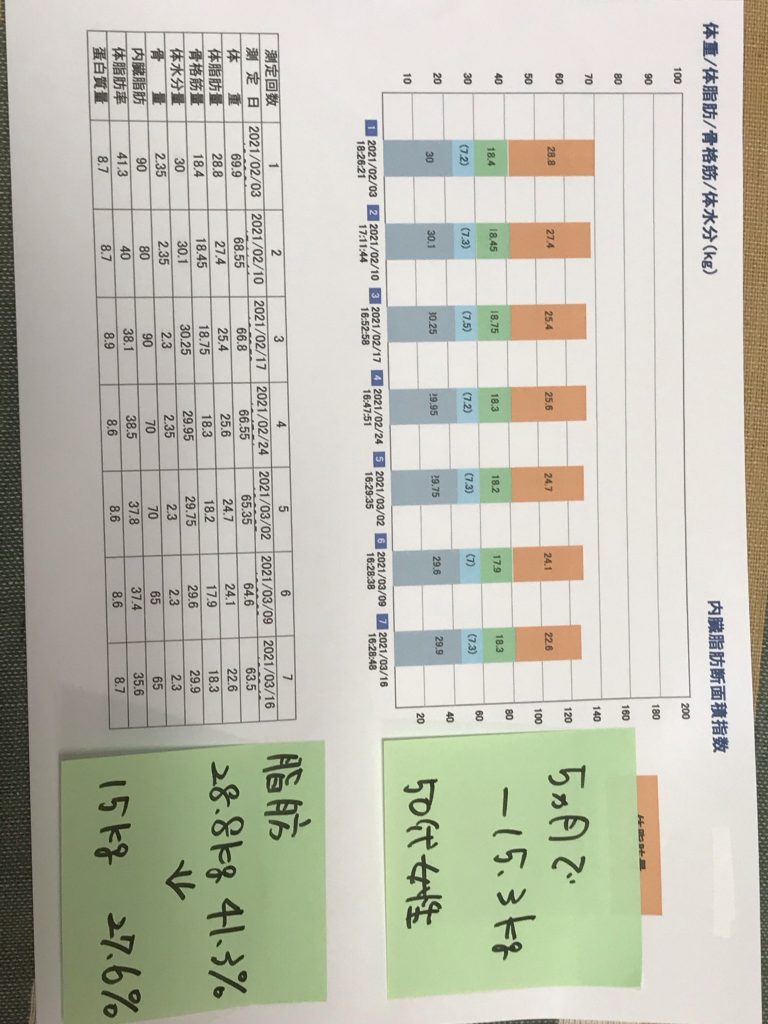 体重/体脂肪/骨格筋/体水分(kg) 内臓脂肪断面積指数
100 200
90 180
80 160
70 140
60 120
50 100
40 80
30 60
20 40
10 20
28.8 27.4 25.4 25.6 24.7 24.1 22.6
18.4 18.45 18.75 18.3 18.2 17.9 18.3
(7.2) (7.3) (7.5) (7.2) (7.3) (7) (7.3)
30 30.1 30.25 29.95 29.75 29.6 29.9
1 2021/02/03 2 2021/02/10 3 2021/02/17 4 2021/02/24 5 2021/03/02 6 2021/03/09 7 2021/03/16
18:26:21 17:11:44 16:52:58 16:47:51 16:29:35 16:28:38 16:28:48
測定回数 1 2 3 4 5 6 7
測定日 2021/02/03 2021/02/10 2021/02/17 2021/02/24 2021/03/02 2021/03/09 2021/03/16
体重 69.9 68.55 66.8 66.55 65.35 64.6 63.5
体脂肪量 28.8 27.4 25.4 25.6 24.7 24.1 22.6
骨格筋量 18.4 18.45 18.75 18.3 18.2 17.9 18.3
体水分量 30 30.1 30.25 29.95 29.75 29.6 29.9
骨量 2.35 2.35 2.3 2.35 2.3 2.3 2.3
内臓脂肪 90 80 90 70 70 65 65
体脂肪率 41.3 40 38.1 38.5 37.8 37.4 35.6
蛋白質量 8.7 8.7 8.9 8.6 8.6 8.6 8.7
5ヵ月で
-15.3kg
50代女性
脂肪
28.8kg 41.3%
↓
15kg 27.6%